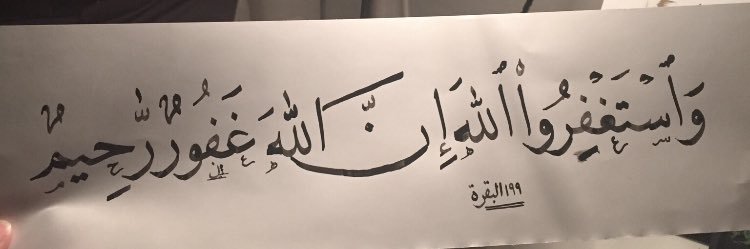 وَاسْتَغْفِرُوا اللهَ إِنَّ اللهَ غَفُورٌ رَّحِيمٌ
١٩٩ البقرة